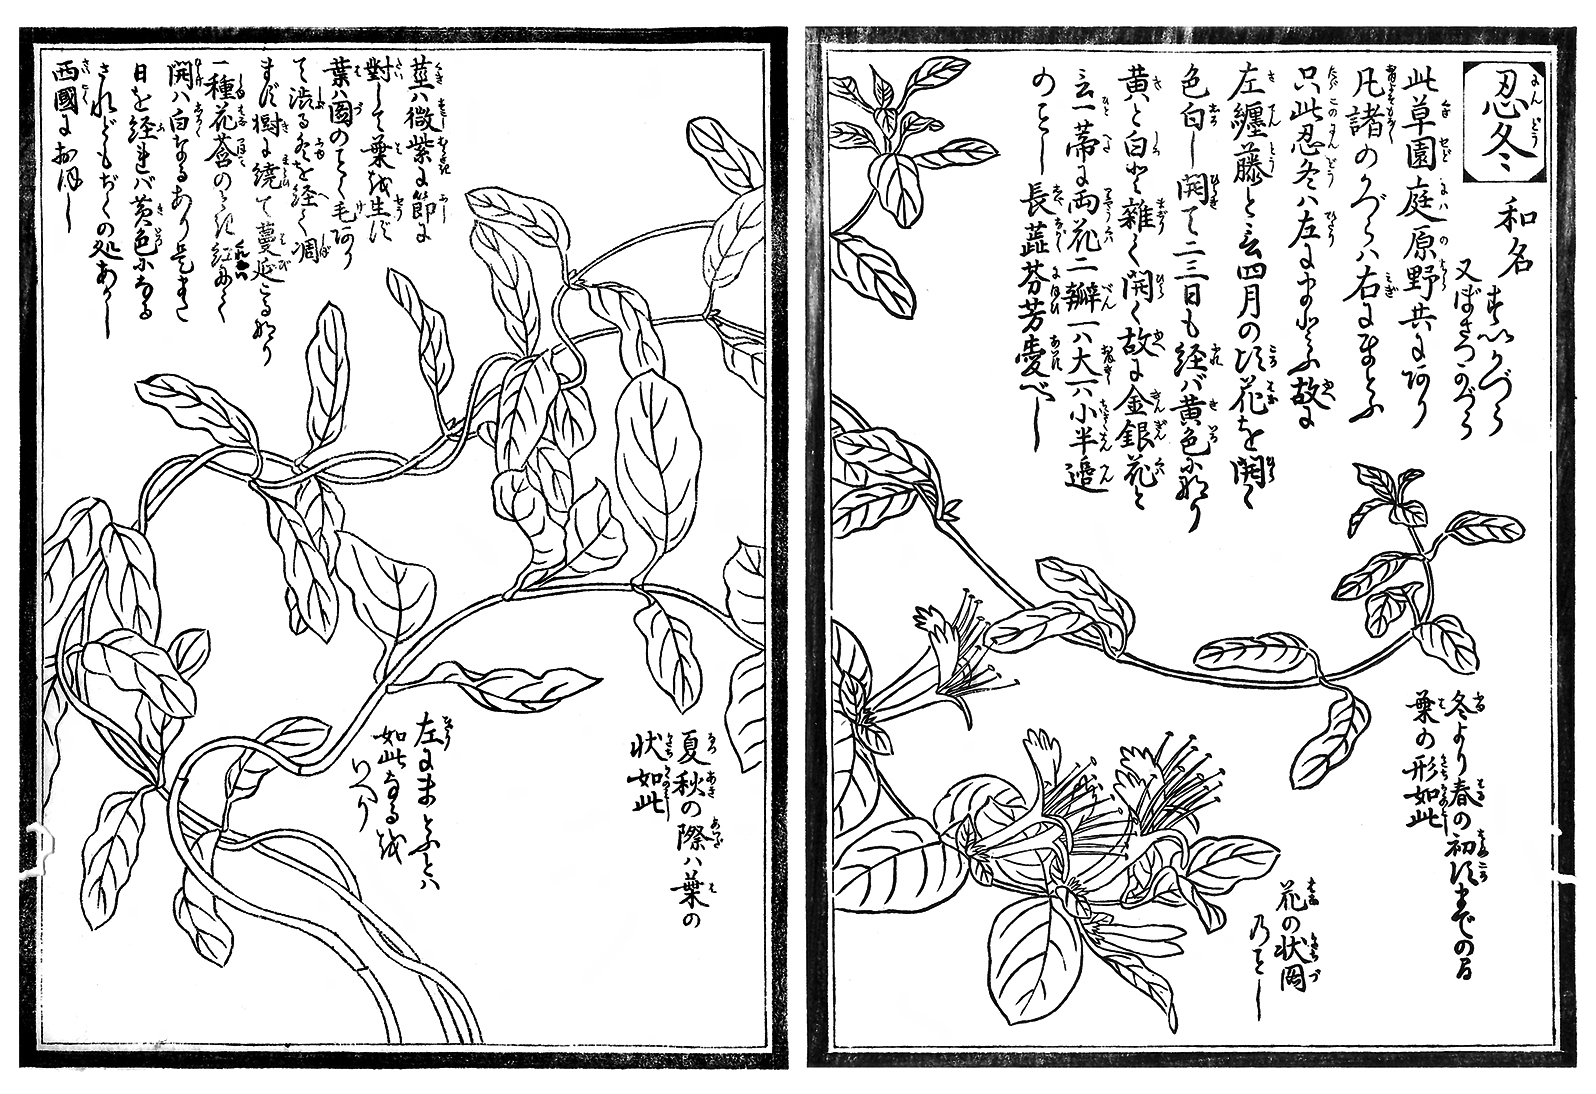 忍冬
和名 すいかづら
又ぼさつかづら
此草園庭原野共にあり
凡諸のかづらハ右にまとふ
只此忍冬ハ左にまとふ故に
左纏藤と云四月の頃花を開く
色白し開て二三日も経バ黄色になり
黄と白と雑て開く故に金銀花と
云一蒂に両花二瓣一ハ大一ハ小半邉
のごとし長蕋芬芳愛べし
冬より春の初頃までの間
葉の形如此
花の状図
乃ごとし
茎ハ微紫に節に
對して葉を生ず
葉ハ図のごとく毛あり
て渋る冬を経て凋
まず樹に繞て蔓延こるなり
一種花蕾のとき紅にて
開ハ白なるあり是また
日を経れバ黄色になる
されどもぢくの処あかし
西國に多し
夏秋の際ハ葉の
状如此
左にまとふとハ
如此なるを
いへり